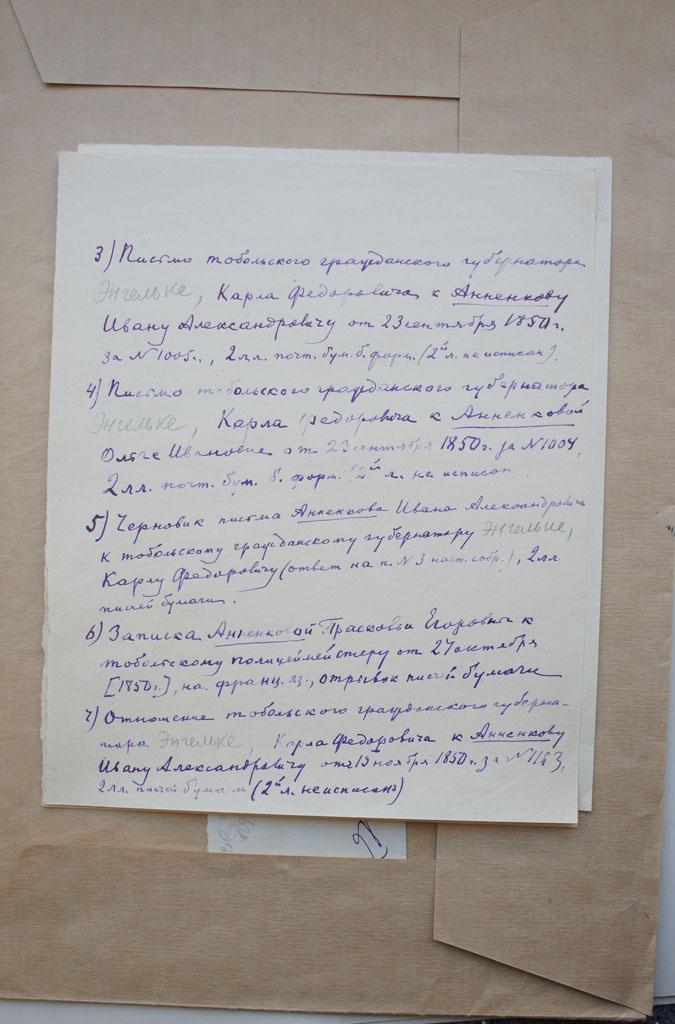 3) Письмо тобольского гражданского губернатора
Энгельке, Карла Федоровича к Анненкову
Ивану Александровичу от 23 сентября 1850 г.
за N 1005., 2 лл. почт. бум. б. форм. (2й л. не исписан).
4) Письмо тобольского гражданского губернатора
Энгельке, Карла Федоровича к Анненковой
Ольге Ивановне от 23 сентября 1850 г. за N 1004,
2 лл. почт. бум. б. форм. (2й л. не исписан
5) Черновик письма Анненкова Ивана Александровича
к тобольскому гражданскому губернатору Энгельке,
Карлу Федоровичу (ответ на п. N 3 наст. собр.), 2 лл
писчей бумаги.
6) Записка Анненковой Прасковьи Егоровны к
тобольскому полицеймейстеру от 27 октября
[1850 г.], на франц. яз., отрывок писчей бумаги
7) Отношение тобольского гражданского губерна-
тора Энгельке, Карла Федоровича к Анненкову
Ивану Александровичу от 15 ноября 1850 г. за N
2 лл. писчей бумаги (2й л. не исписан)